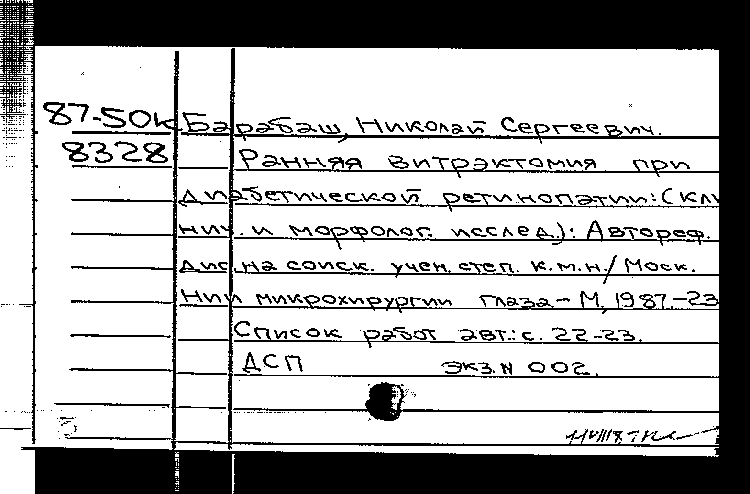 87-50к Барабаш, Николай Сергеевич.
8328 Ранняя витрэктомия при
диабетической ретинопатии: (кли
нич. и морфолог. исслед.): Автореф.
дис. на соиск. учен. степ. к.м.н. / Моск.
НИИ микрохирургии глаза - М, 1987.-23
Список работ авт.: с. 22-23.
ДСП экз. N 002.